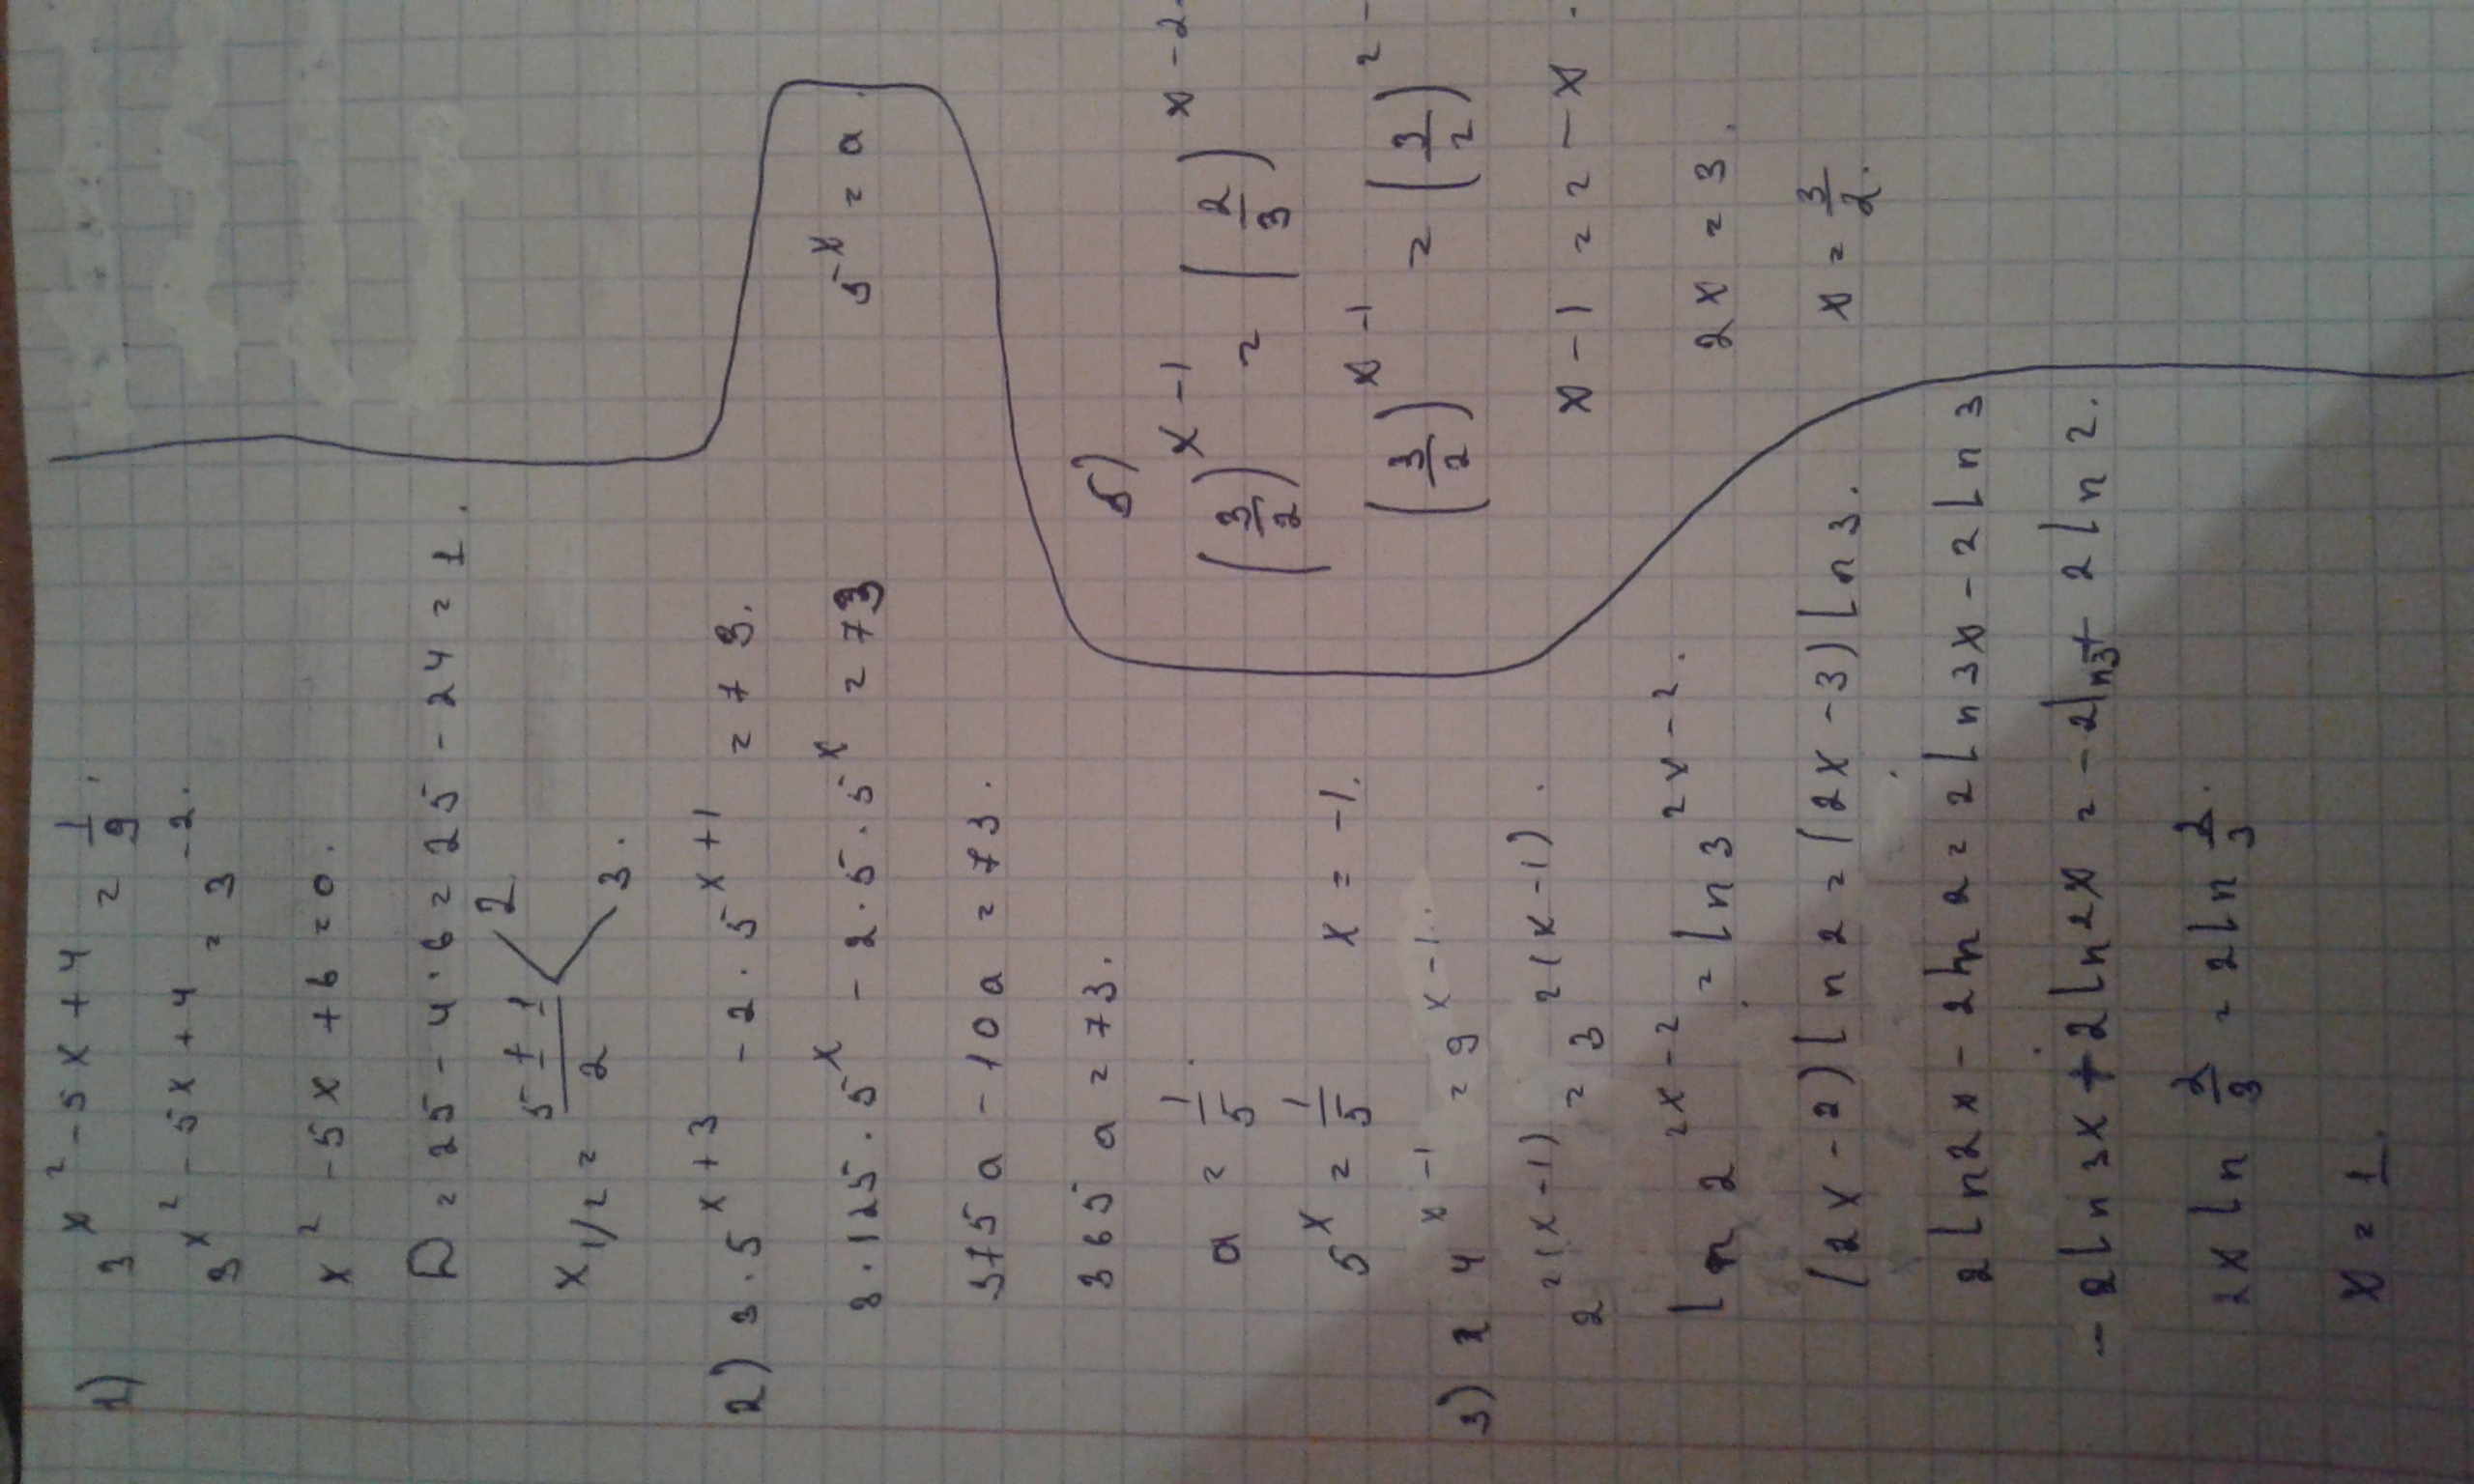 1) 3^(x²-5x+4) = 1/9.
3^(x²-5x+4) = 3^(-2).
x² - 5x + 6 = 0.
D = 25 - 4·6 = 25 - 24 = 1.
x 1/2 = (5 ± 1)/2 < 2 3.
2) 3·5^(x+3) - 2·5^(x+1) = 73.
3·125·5^x - 2·5·5^x = 73
5^x = a.
375a - 10a = 73.
365a = 73.
a = 1/5.
5^x = 1/5 x = -1.
3) 4^(x-1) = 9^(x-1).
2^(2(x-1)) = 3^(2(x-1)).
ln 2^(2x-2) = ln 3^(2x-2).
(2x-2) ln 2 = (2x-3) ln 3.
2 ln 2x - 2 ln 2 = 2 ln 3x - 2 ln 3
- 2 ln 3x + 2 ln 2x = - 2 ln 3 + 2 ln 2.
2x ln 2/3 = 2 ln 2/3.
x = 1.
б)
(3/2)^(x-1) = (2/3)^(x-2)
(3/2)^(x-1) = (3/2)^(2-
x - 1 = 2 - x.
2x = 3.
x = 3/2.